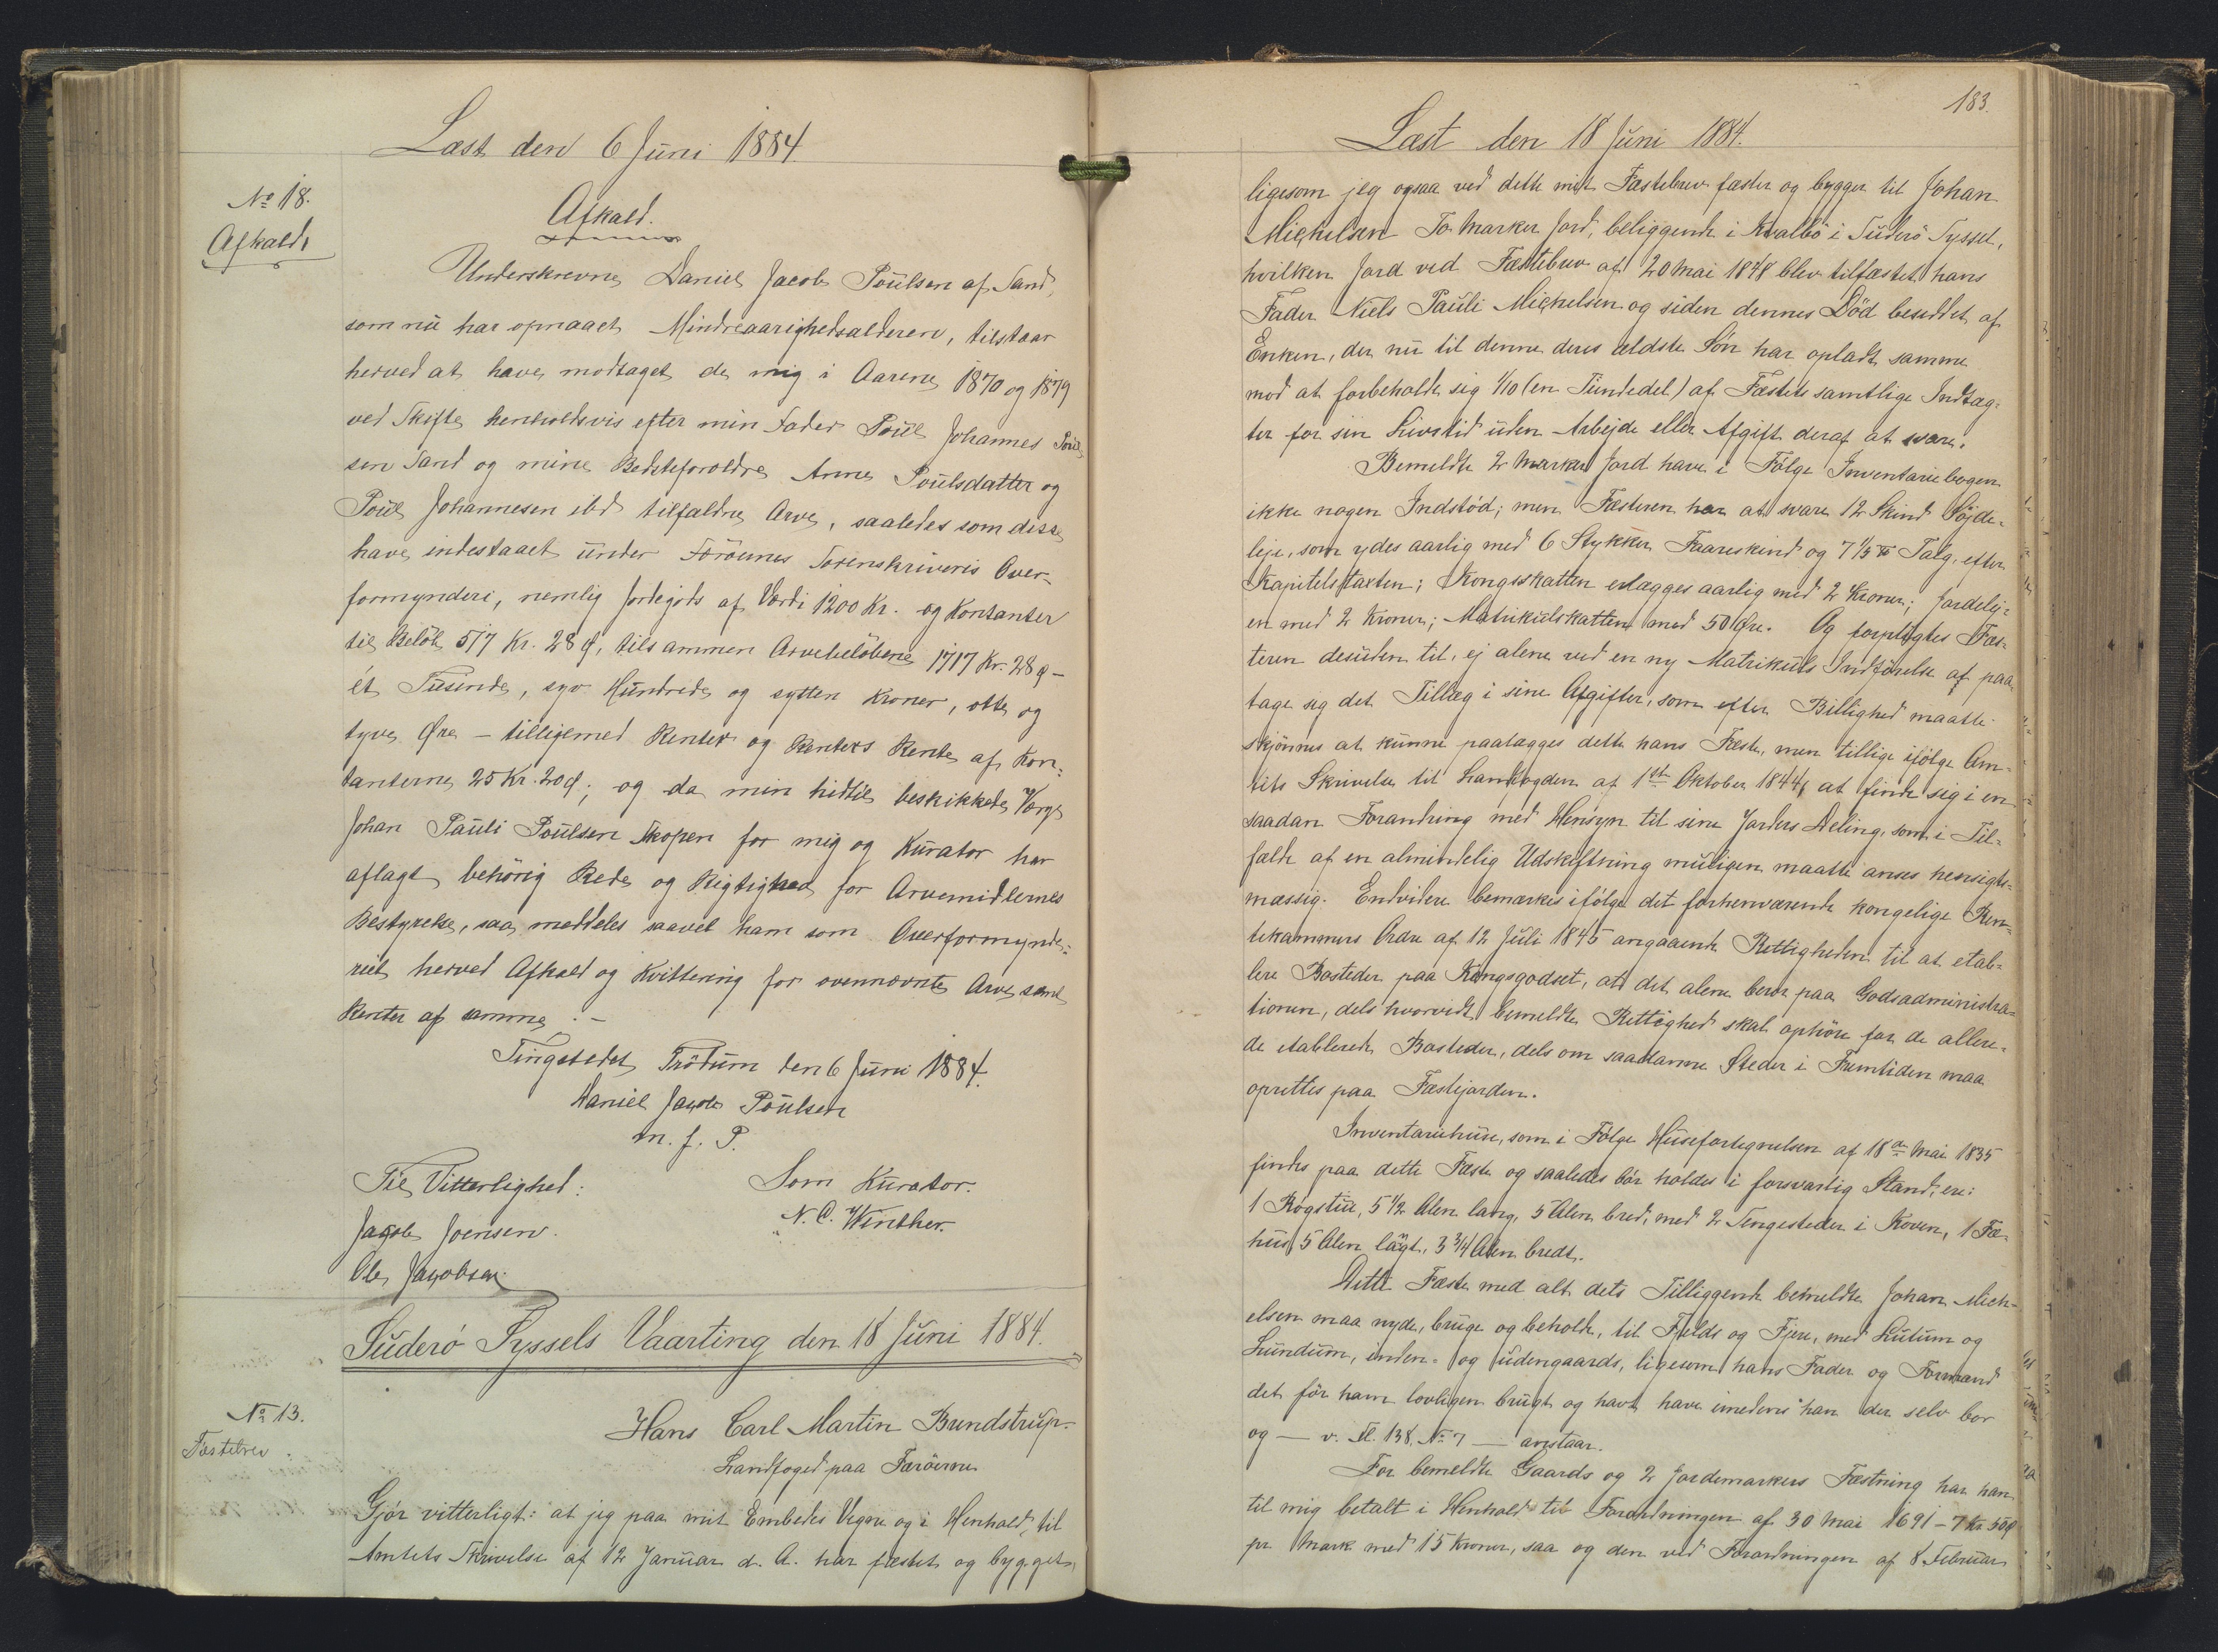 Læst den 6 Juni 1884
No 18.
Afkald.
Afkald.
Underskrevne Daniel Jacob Poulsen af Sand,
som nu har opnaaet Mindreaarighedsalderen, tilstaar
herved at have modtaget de mig i Aarene 1870 og 1879
ved Skifte henholdsvis efter min Fader Poul Johannes Poul
sen Sand og mine Bedsteforældre Anne Poulsdatter og
Poul Johannesen ibd tilfaldne Arve, saaledes som disse
have indestaaet under Færøernes Sorenskriveris Over-
formynderi, nemlig Jordegods af Værdi 1200 Kr. og Kontanter
til Beløb 517 Kr. 28 Ø, tilsammen Arvebeløbene 1717 Kr. 28 Ø -
ét Tusinde, syv Hundrede og sytten Kroner, otte og
tyve Øre - tilligemed Renter og Renters Rente af Kon=
tanterne 25 Kr. 20 Ø; og da min hidtil beskikkede Værge
Johan Pauli Poulsen Skopen for mig og Kurator har
aflagt behørig Rede og Rigtighed for Arvemidlernes
Bestyrelse, saa meddeles saavel ham som Overformynde=
riet herved Afkald og Kvittering for ovennævnte Arve samt
Renter af samme. -
Tingstedet Trødum den 6 Juni 1884.
Daniel Jacob Poulsen
m. f. P.
Til Vitterlighed:
Som Kurator.
Jacob Joensen.
N. C. Winther.
Ole Jacobsen
Suderø Syssels Vaarting den 18 Juni 1884.
No 13.
Fæstebrev.
Hans Carl Martin Bundstrup.
Landfoged paa Færøerne
Gjør vitterligt: at jeg paa mit Embedes Vegne og i Henhold til
Amtets Skrivelse af 12 Januar d. A. har fæstet og bygget,
183.
Læst den 18 Juni 1884.
ligesom jeg ogsaa ved dette mit Fæstebrev fæster og bygger til Johan
Michelsen To Marker Jord, beliggende i Kvalbø i Suderø Syssel,
hvilken Jord ved Fæstebrev af 20 Mai 1878 blev tilfæstet hans
Fader Niels Pauli Michelsen og siden dennes Død besiddet af
Enken, der nu til denne deres ældste Søn har opladt samme
mod at forbeholde sig 1/10 (en Tiendedel) af Fæstets samtlige Indtæg-
ter for sin Livstid uden Arbejde eller Afgift deraf at svare.
Bemeldte 2 Marker Jord have i Følge Inventariebogen
ikke nogen Indstød; men Fæsteren har at svare 12 Skind Søjde-
leje, som ydes aarlig med 6 Stykker Faareskind og 7 1/5 ℔ Talg, efter
Kapitelstaxten; Kongsskatten erlægges aarlig med 2 Kroner; Jordelej-
en med 2 Kroner; Matrikulskatten med 50 Øre. Og forpligtes Fæs-
teren desuden til, ej alene ved en ny Matrikuls Indførelse af paa
tage sig det Tillæg i sine Afgifter, som efter Billighed maatte
skjønnes at kunne paalægges dette hans Fæste, men tillige ifølge Am-
tets Skrivelse til Landfogden af 1ste Oktober 1844, at finde sig i en
saadan Forandring med Hensyn til sine Jorders Deling, som i Til-
fælde af en almindelig Udskiftning muligen maatte anses hensigts-
mæssig. Endvidere bemærkes ifølge det forhenværende kongelige Ren-
tekammers Ordre af 12 Juli 1845 angaaende Rettigheden til at etab-
lere Bosteder paa Kongsgodset, at det alene beror paa Godsadministra-
tionen, dels hvorvidt bemeldte Rettighed skal ophøre for de allere-
de etablerede Bosteder, dels om saadanne Steder i Fremtiden maa
oprettes paa Fæstejorden.
Inventariehuse, som i Følge Husefortegnelsen af 18de Mai 1835
findes paa dette Fæste og saaledes bør holdes i forsvarlig Stand, ere:
1 Røgstue, 5 1/2 Alen lang, 5 Alen bred, med 2 Sengesteder i Koven, 1 Fæ-
hus, 5 Alen langt, 3 3/4 Alen bredt.
Dette Fæste med alt dets Tilliggende bemeldte Johan Mich-
elsen maa nyde, bruge og beholde, til Fjelds og Fjære, med Lutum og
Lundum, inden- og udengaards, ligesom hans Fader og Formand
det før ham lovligen brugt og havt have imedens han der selv bor
og — v. Fl. 138, No 7 — anstaar.
For bemeldte Gaards og 2 Jordemarkers Fæstning har han
til mig betalt i Henhold til Forordningen af 30 Mai 1691 - 7 Kr. 50 Ø
pr Mark med 15 Kroner, saa og den ved Forordningen af 8 Februar